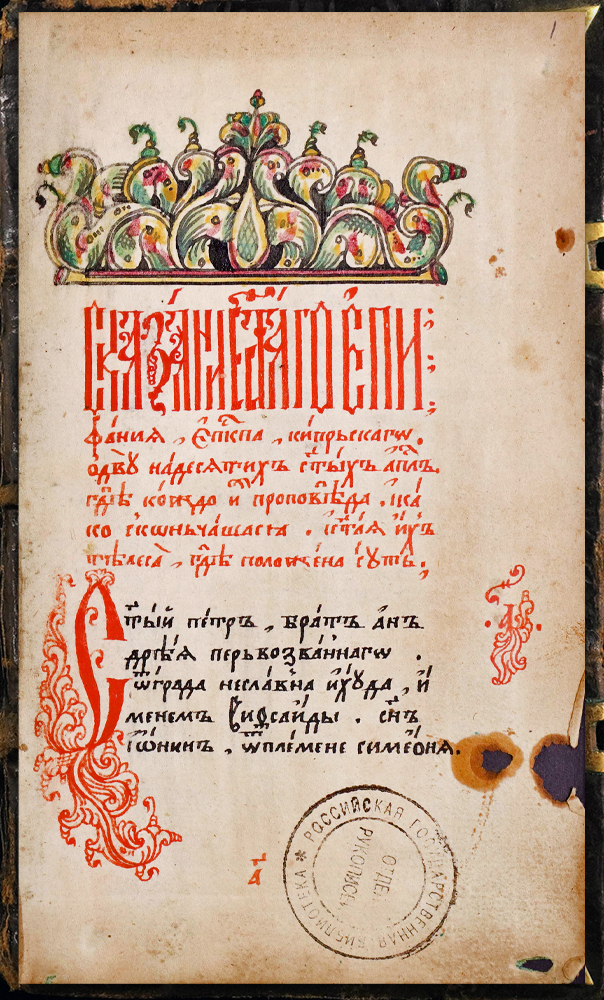 1
Сказание ст҃аго епи
фания , є҆пк҇па , кипрьскагѡ .
одвꙋ надесятихъ ст҃ыхъ ап҇лъ .
гдѣ ко́иждо и҆ проповѣда . и҆ка
ко скѡньчашася . ст҃ая и҆́хъ
тѣлеса̀ , гдѣ положена сꙋть .
Ст҃ый пе́тръ , братъ а҆нъ
дрѣ́я перьвозва́ннагѡ .
ѿграда несла́вна и҆хꙋда , и҆́
менемъ виѳсаи́ды . сн҃ъ
іѡ́нинъ , ѿплемене симео́ня .
а҃
РОССИЙСКАЯ ГОСУДАРСТВЕННАЯ БИБЛИОТЕКА
ОТДЕЛ
РУКОПИСЕЙ